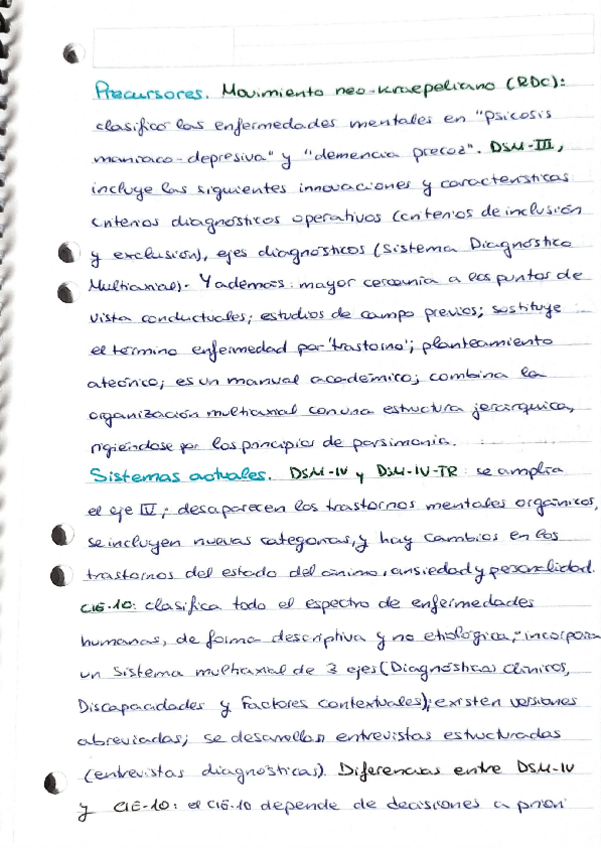 Precursores. Movimiento neo-kraepeliano (RDC):
clasificó las enfermedades mentales en "psicosis
maniaco-depresiva" y "demencia precoz". DSM-III,
incluye las siguientes innovaciones y características
criterios diagnósticos operativos (criterios de inclusión
y exclusión), ejes diagnósticos (Sistema Diagnóstico
Multiaxial). Y además: mayor cercanía a los puntos de
vista conductuales; estudios de campo previos; sustituye
el término enfermedad por 'trastorno'; planteamiento
ateórico; es un manual académico; combina la
organización multiaxial con una estructura jerárquica,
rigiéndose por los principios de parsimonia.
Sistemas actuales. DSM-IV y DSM-IV-TR: se amplía
el eje IV; desaparecen los trastornos mentales orgánicos,
se incluyen nuevas categorías, y hay cambios en los
trastornos del estado del ánimo, ansiedad y personalidad.
CIE-10: clasifica todo el espectro de enfermedades
humanas, de forma descriptiva y no etiológica; incorpora
un sistema multiaxial de 3 ejes (Diagnósticos Clínicos,
Discapacidades y Factores contextuales); existen versiones
abreviadas; se desarrollan entrevistas estructuradas
(entrevistas diagnósticas). Diferencias entre DSM-IV
y CIE-10: el CIE-10 depende de decisiones a priori